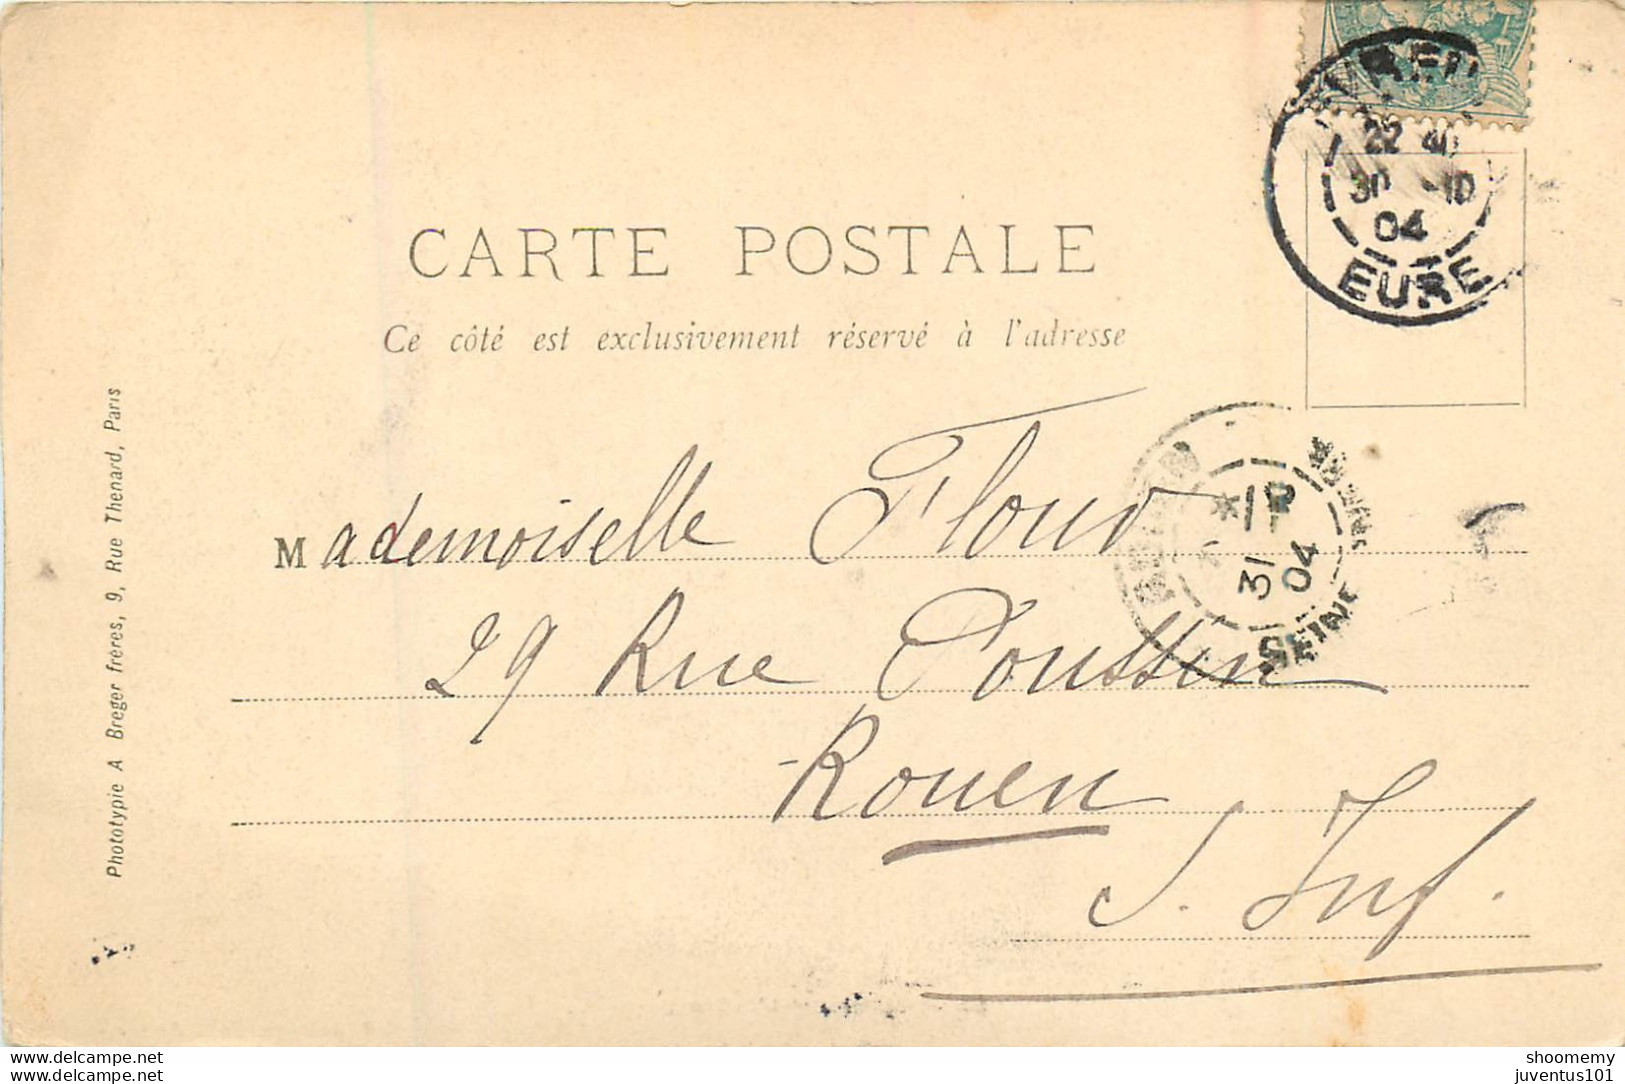 EVREU
22 40
30 -10
04
EURE
CARTE POSTALE
Ce côté est exclusivement réservé à l'adresse
Mademoiselle Flour
31
04
SEINE
29 Rue Poussin
Rouen
S. Inf.
Phototypie A Breger frères, 9, Rue Thenard, Paris
posted by juventus101 on delcampe.net
shoomemy
juventus101